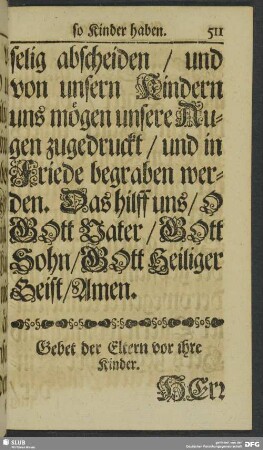 so Kinder haben. 511
selig abscheiden / und
von unsern Kindern
uns mögen unsere Au-
gen zugedruckt / und in
Friede begraben wer-
den. Das hilff uns / O
GOtt Vater / GOtt
Sohn / GOtt Heiliger
Geist / Amen.
Gebet der Eltern vor ihre
Kinder.
HErr
SLUB
DFG